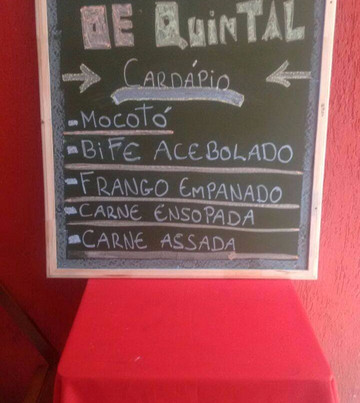 DE QUINTAL
CARDÁPIO
- MOCOTÓ
- BIFE ACEBOLADO
- FRANGO EMPANADO
- CARNE ENSOPADA
- CARNE ASSADA